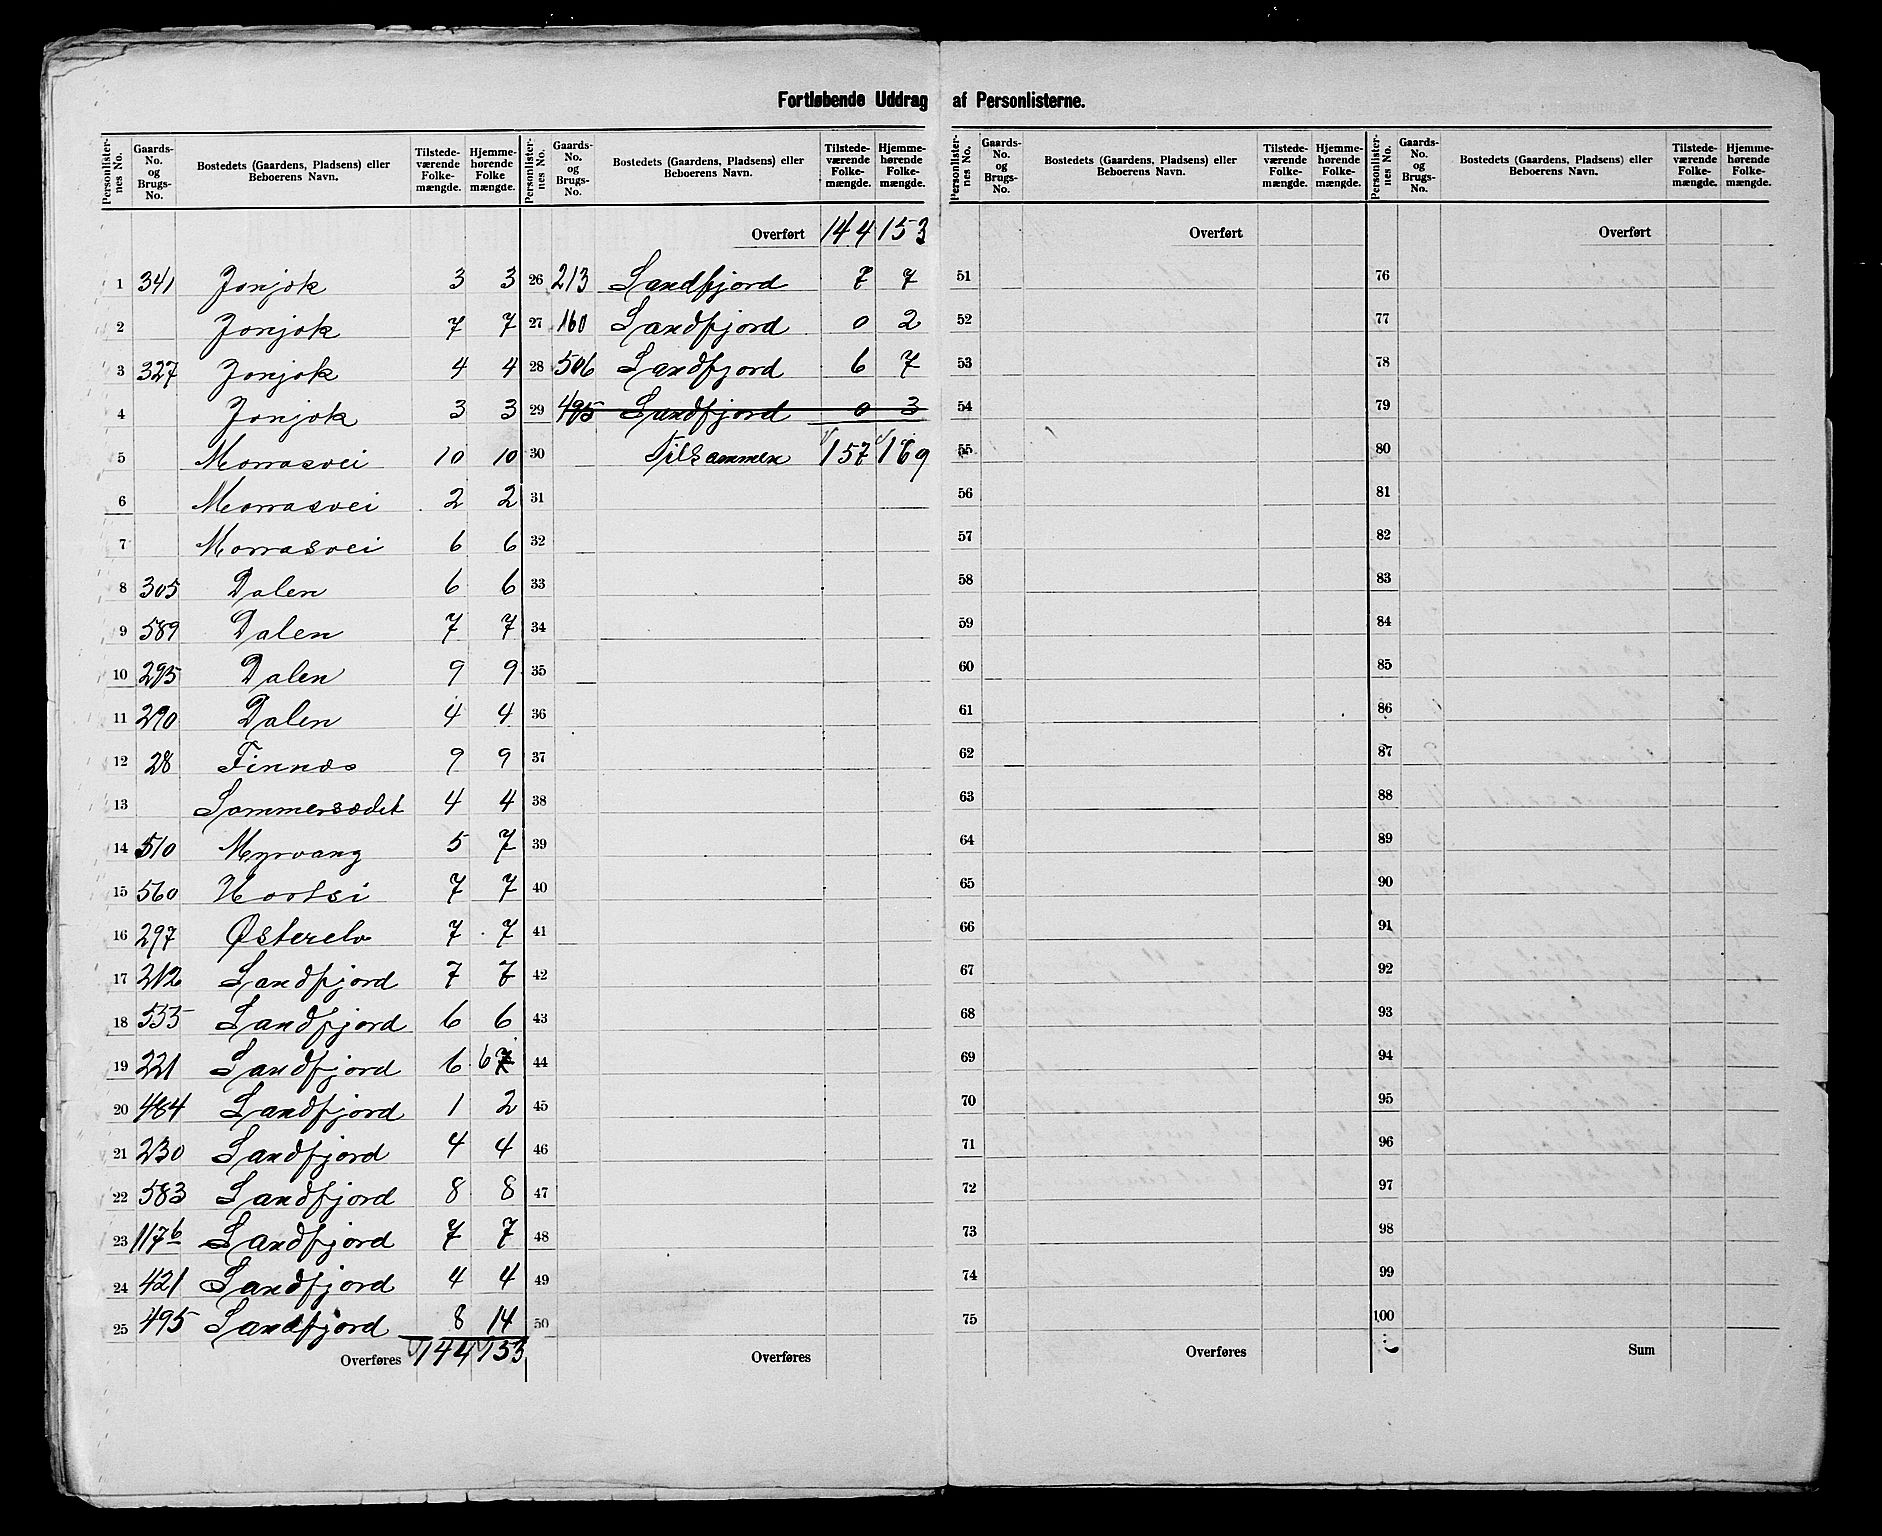 Fortløbende Uddrag af Personlisterne.
Personlister-nes No. Gaards-No. og Brugs-No. Bostedets (Gaardens, Pladsens) eller Beboerens Navn. Tilstede-værende Folke-mængde. Hjemme-hørende Folke mængde.
1 341 Jonjok 3 3
2 Jonjok 7 7
3 327 Jonjok 4 4
4 Jonjok 3 3
5 Morrasvei 10 10
6 Morrasvei 2 2
7 Morrasvei 6 6
8 305 Dalen 6 6
9 589 Dalen 7 7
10 295 Dalen 9 9
11 290 Dalen 4 4
12 28 Finnæs 9 9
13 Sommersædet 4 4
14 510 Myrvang 5 7
15 560 7 7
16 297 Østerelv 7 7
17 212 Sandfjord 7 7
18 555 Sandfjord 6 6
19 221 Sandfjord 6 6 7
20 484 Sandfjord 1 2
21 230 Sandfjord 4 4
22 583 Sandfjord 8 8
23 117b Sandfjord 7 7
24 421 Sandfjord 4 4
25 495 Sandfjord 8 14
Overføres 144 153
Personlister-nes No. Gaards-No. og Brugs-No. Bostedets (Gaardens, Pladsens) eller Beboerens Navn. Tilstede-værende Folke-mængde. Hjemme-hørende Folke-mængde.
Overført 144 153
26 213 Sandfjord 7 7
27 160 Sandfjord 0 2
28 506 Sandfjord 6 7
29 495 Sandfjord 0 3
30 Tilsammen 157 169
31
32
33
34
35
36
37
38
39
40
41
42
43
44
45
46
47
48
49
50
Overføres
Personlister-nes No. Gaards-No. og Brugs-No. Bostedets (Gaardens, Pladsens) eller Beboerens Navn. Tilstede-værende Folke-mængde. Hjemme-hørende Folke-mængde.
Overført
51
52
53
54
55
56
57
58
59
60
61
62
63
64
65
66
67
68
69
70
71
72
73
74
75
Overføres
Personlister-nes No. Gaards-No. og Brugs-No. Bostedets (Gaardens, Pladsens) eller Beboerens Navn. Tilstede-værende Folke-mængde. Hjemme-hørende Folke-mængde.
Overført
76
77
78
79
80
81
82
83
84
85
86
87
88
89
90
91
92
93
94
95
96
97
98
99
100
Sum